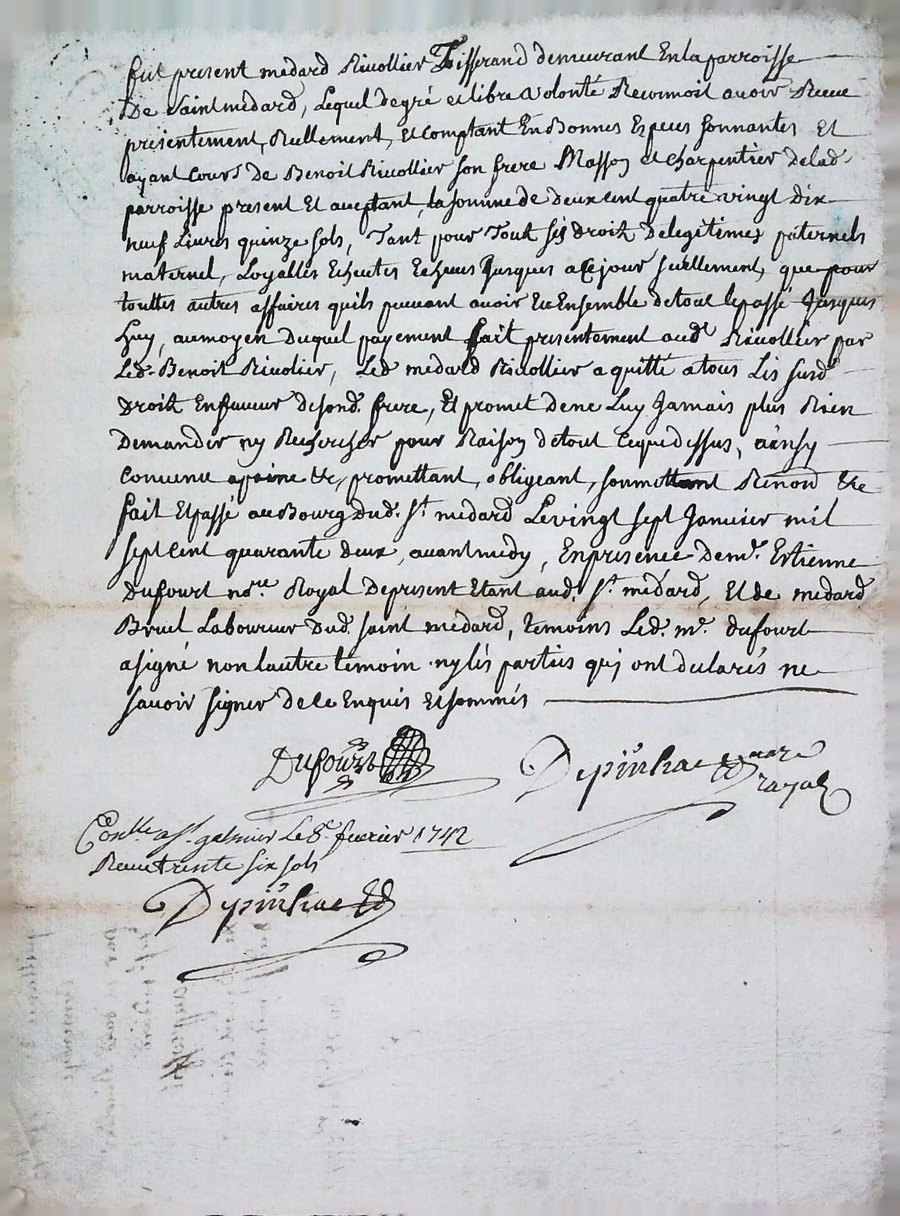 fut present medard Rivollier Tisserand demeurant En la parroisse
De Saint medard, Lequel de gré et libre volonté Reconnoit avoir Receu
présentement, Réellement, et Comptant En Bonnes Especes sonnantes Et
ayant Cours de Benoit Rivollier son frere Masson et charpentier de lad.
parroisse present Et aceptant, la somme de deux cent quatre vingt dix
neuf Livres quinze sols, Tant pour Tout ses droits de legitimes paternels
maternel, Loyalles Echeutes Echeues Jusques a Ce jour seullement, que pour
touttes autres affaires quils peuvent avoir Eu Ensemble de tout le passé Jusques
huy, au moyen Duquel payement fait presentement aud. Rivollier par
Led. Benoit Rivolier, Led. medard Rivollier a quitté a tous Les susd.
Droits En faveur de sond. frere, Et promet de ne Luy Jamais plus Rien
Demander ny Rechercher pour Raison de tout Ce que dessus, ainsy
Convenu a peine &c, promettant, obligeant, soumettant Renond. &c
fait Et passé au Bourg dud. St. medard Le vingt sept Janvier mil
sept Cent quarante deux, avant midy, En presence de me. Estienne
Dufourt nore. Royal De present Etant aud. St. medard, Et de medard
Bruel Laboureur Dud. Saint medard, temoins Led. me. dufourt
a signé non lautre temoin ny les parties qui ont declarés ne
savoir signer de ce Enquis Et sommés
Dufourt Depinhac
nore
royal
Conlle a St. galmier Le 8e. fevrier 1742
Receu trente six sols
Depinhac